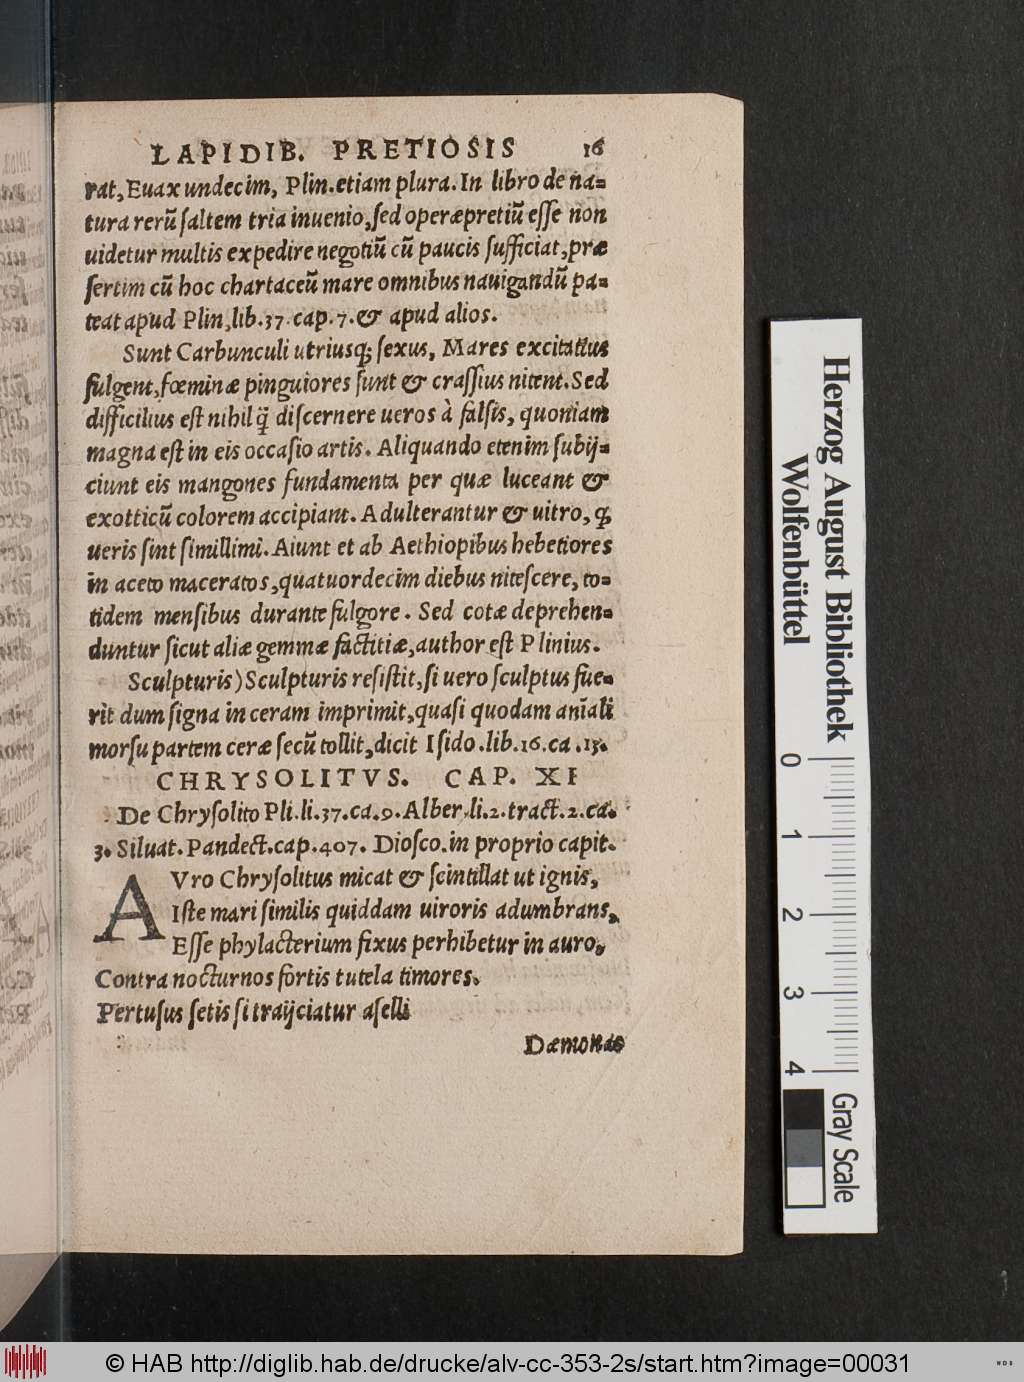 LAPIDIB. PRETIOSIS 16
rat, Euax undecim, Plin. etiam plura. In libro de na-
tura rerũ ſaltem tria inuenio, ſed operæpretiũ eſſe non
uidetur multis expedire negotiũ cũ paucis ſufficiat, præ
ſertim cũ hoc chartaceũ mare omnibus nauigandũ pa-
teat apud Plin, lib. 37. cap. 7. & apud alios.
Sunt Carbunculi utriusq; ſexus, Mares excitatius
fulgent, fœminæ pinguiores ſunt & craſſius nitent. Sed
difficilius eſt nihil q̃ diſcernere ueros à falſis, quoniam
magna eſt in eis occaſio artis. Aliquando etenim ſubij-
ciunt eis mangones fundamenta per quæ luceant &
exotticũ colorem accipiant. Adulterantur & uitro, q;
ueris ſint ſimillimi. Aiunt et ab Aethiopibus hebetiores
in aceto maceratos, quatuordecim diebus niteſcere, to-
tidem menſibus durante fulgore. Sed cotæ deprehen-
duntur ſicut aliæ gemmæ factitiæ, author eſt Plinius.
Sculpturis) Sculpturis reſiſtit, ſi uero ſculptus fue-
rit dum ſigna in ceram imprimit, quaſi quodam aniãli
morſu partem ceræ ſecũ tollit, dicit Iſido. lib. 16. ca. 13.
CHRYSOLITVS. CAP. XI
De Chryſolito Pli. li. 37. ca. 9. Alber. li. 2. tract. 2. ca.
3. Siluat. Pandect. cap. 407. Dioſco. in proprio capit.
AVro Chryſolitus micat & ſcintillat ut ignis,
Iſte mari ſimilis quiddam uiroris adumbrans,
Eſſe phylacterium fixus perhibetur in auro,
Contra nocturnos fortis tutela timores.
Pertuſus ſetis ſi traijciatur aſelli
Dæmonas
Herzog August Bibliothek
Wolfenbüttel
0 1 2 3 4
Gray Scale
© HAB http://diglib.hab.de/drucke/alv-cc-353-2s/start.htm?image=00031